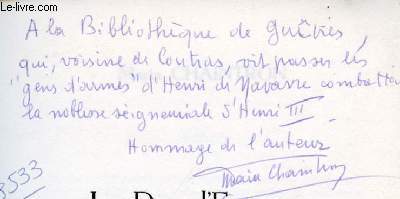 Le-livre.com
A la Bibliothèque de GUÎTRES
qui, voisine de Coutras, vit passer les
"gens d'armes" d'Henri de Navarre combattre
la noblesse seigneuriale d'Henri III
Hommage de l'auteur
3533